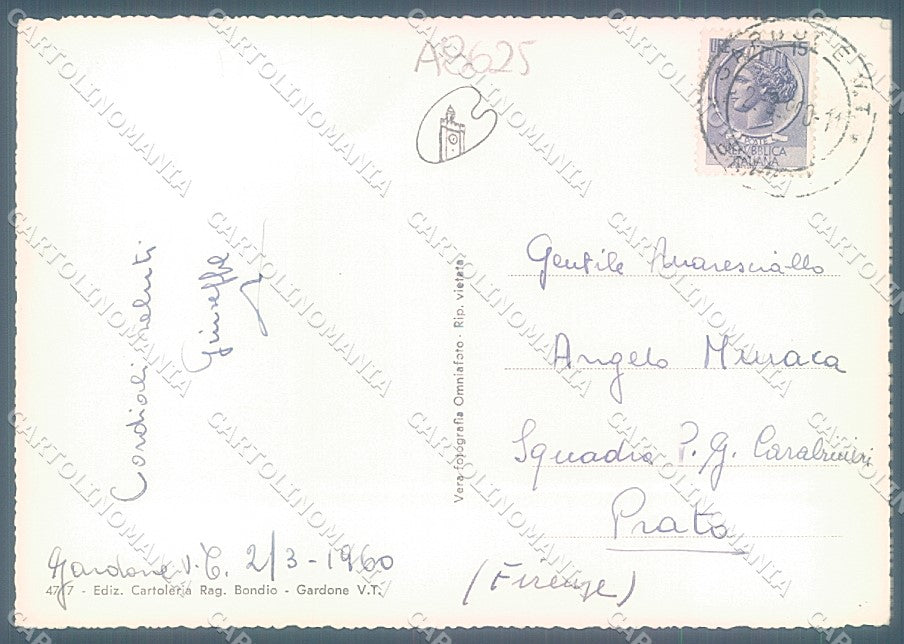 A8625
LIRE 15
REPUBBLICA
ITALIANA
GARDONE V.T.
Cordiali saluti
Giuseppe
Gardone V.T. 2/3-1960
4717 - Ediz. Cartoleria Rag. Bondio - Gardone V.T.
Vera fotografia Omniafoto - Rip. vietata
Gentile Maresciallo
Angelo
Squadra P.G. Carabinieri
Prato
(Firenze)
CARTOLINOMANIA